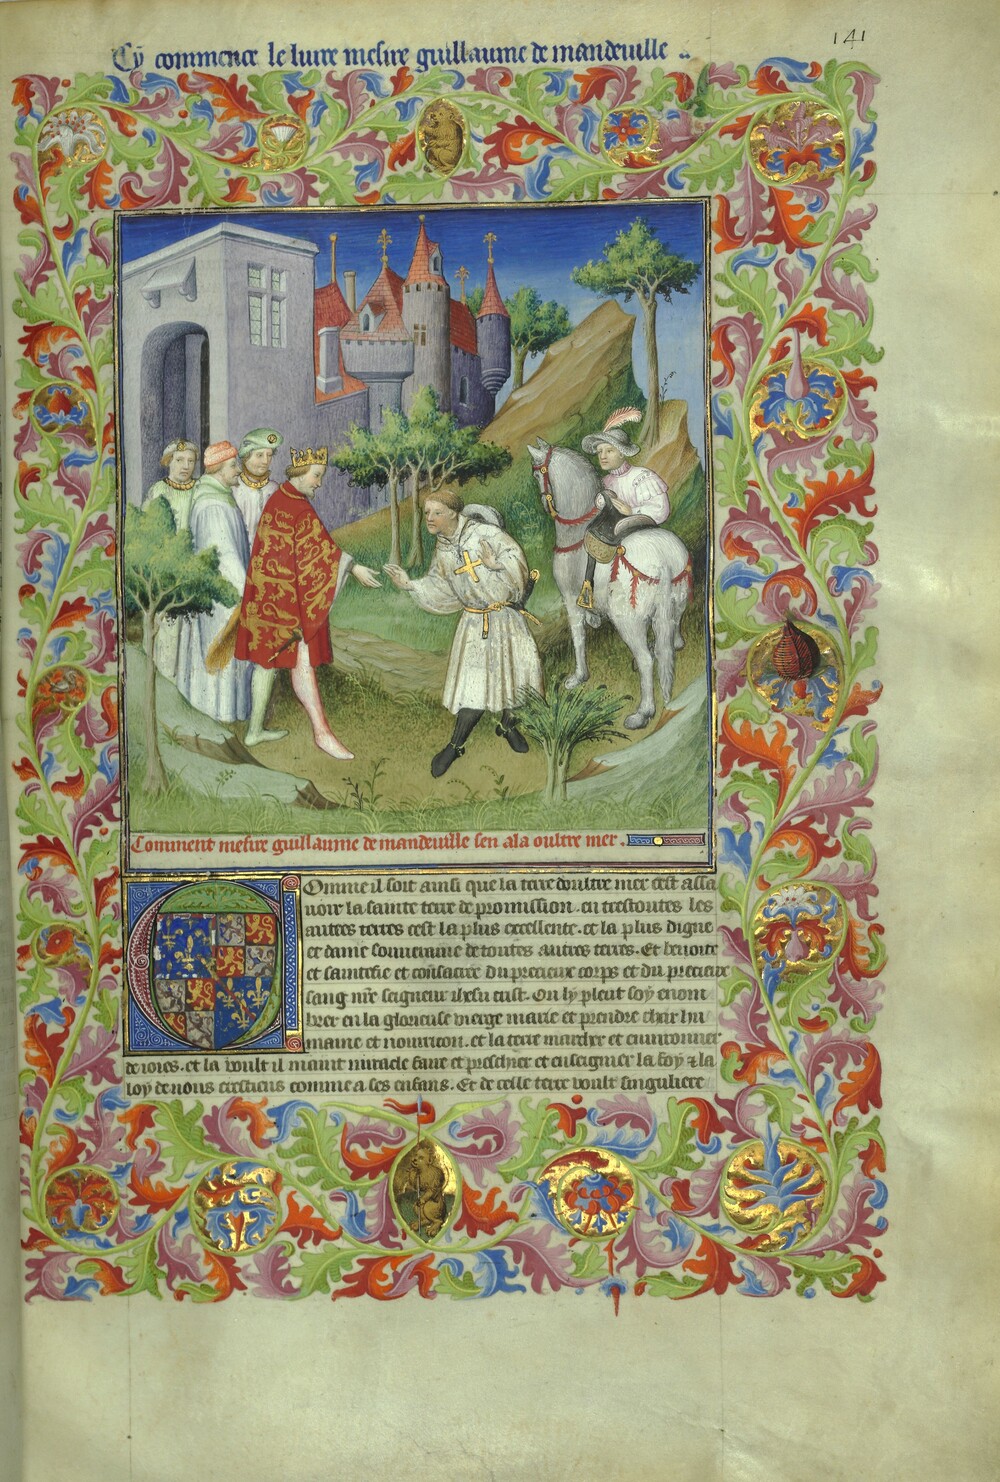 141
Cy commence le livre mesire guillaume de mandeuille ..
Comment mesire guillaume de mandeuille sen ala oultre mer .
Comme il soit ainsi que la terre doultre mer cest assa
uoir la sainte terre de promission . en trestoutes les
autres terres cest la plus excellente . et la plus digne
et dame souueraine de toutes autres terres . Et benoite
et saintefie et consacree du precieux corps et du precieux
sang nre seigneur ihesu crist . Ou ly pleut soy enom
brer en la glorieuse vierge marie et prendre char hu
maine et nourricon . et la terre marcher et enuironner
de ioies . et la voult il maint miracle faire et preschier et enseignier la foy & la
loy de nous crestiens comme a ses enfans . Et de celle terre voult singuliere